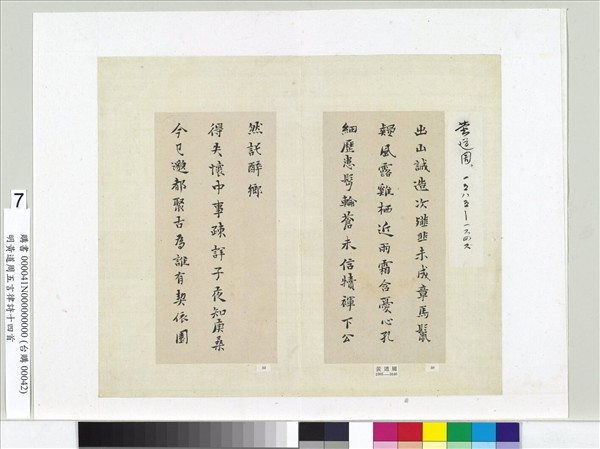 黃道周 一五八五—一六四六
出山誠造次 斐未成章馬鬣
風露雞栖近雨霜含憂心孔
細應患髩輪蒼未信犢褌下公
然託醉鄉
得失懷中事疎詳子夜知庚桑
今已邈都聚古為誰有契依園
黃道周
1585—1646
7
購書 000041N000000000 (台購 00042)
明黃道周五言律詩十四首